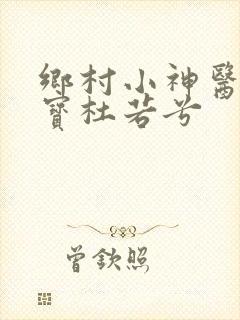 鄉村小神醫
寶杜若兮
曾欽照